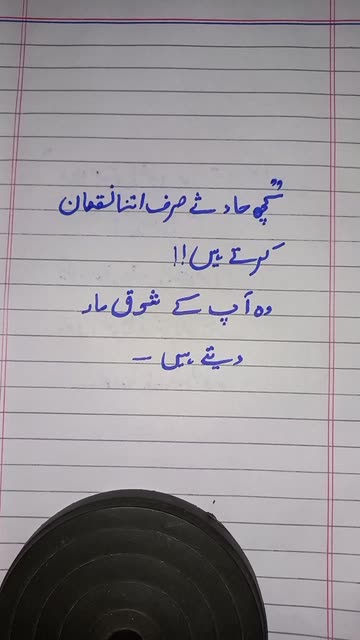 ”کچھ حادثے صرف اتنا نقصان
کرتے ہیں!!
وہ آپ کے شوق مار
دیتے ہیں –